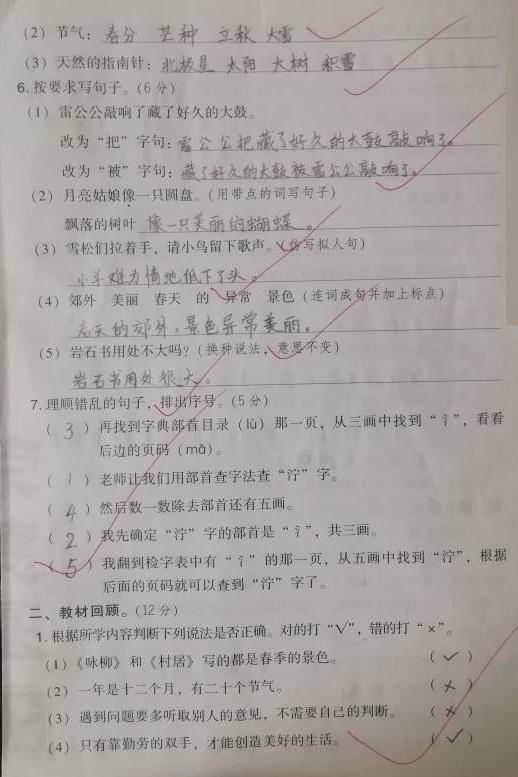 (2) 节气：春分 芒种 立秋 大雪
(3) 天然的指南针：北极星 太阳 大树 积雪
6. 按要求写句子。(6分)
(1) 雷公公敲响了藏了好久的大鼓。
改为“把”字句：雷公公把藏了好久的大鼓敲响了。
改为“被”字句：藏了好久的大鼓被雷公公敲响了。
(2) 月亮姑娘像一只圆盘。(用带点的词写句子)
飘落的树叶 像一只美丽的蝴蝶。
(3) 雪松们拉着手，请小鸟留下歌声。(仿写拟人句)
小羊难为情地低下了头。
(4) 郊外 美丽 春天 的 异常 景色 (连词成句并加上标点)
春天的郊外，景色异常美丽。
(5) 岩石书用处不大吗？(换种说法，意思不变)
岩石书用处很大。
7. 理顺错乱的句子，排出序号。(5分)
( 3 ) 再找到字典部首目录 (lù) 那一页，从三画中找到“氵”，看看
后边的页码 (mǎ)。
( 1 ) 老师让我们用部首查字法查“泞”字。
( 4 ) 然后数一数除去部首还有五画。
( 2 ) 我先确定“泞”字的部首是“氵”，共三画。
( 5 ) 我翻到检字表中有“氵”的那一页，从五画中找到“泞”，根据
后面的页码就可以查到“泞”字了。
二、教材回顾。(12分)
1. 根据所学内容判断下列说法是否正确。对的打“√”，错的打“×”。
(1)《咏柳》和《村居》写的都是春季的景色。 ( √ )
(2) 一年是十二个月，有二十个节气。 ( × )
(3) 遇到问题要多听取别人的意见，不需要自己的判断。 ( × )
(4) 只有靠勤劳的双手，才能创造美好的生活。 ( √ )